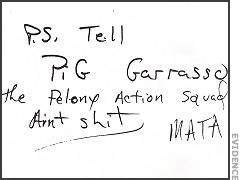 P.S. Tell
PiG Garrasso
the Felony Action Squad
Ain't shit
MATA
EVIDENCE